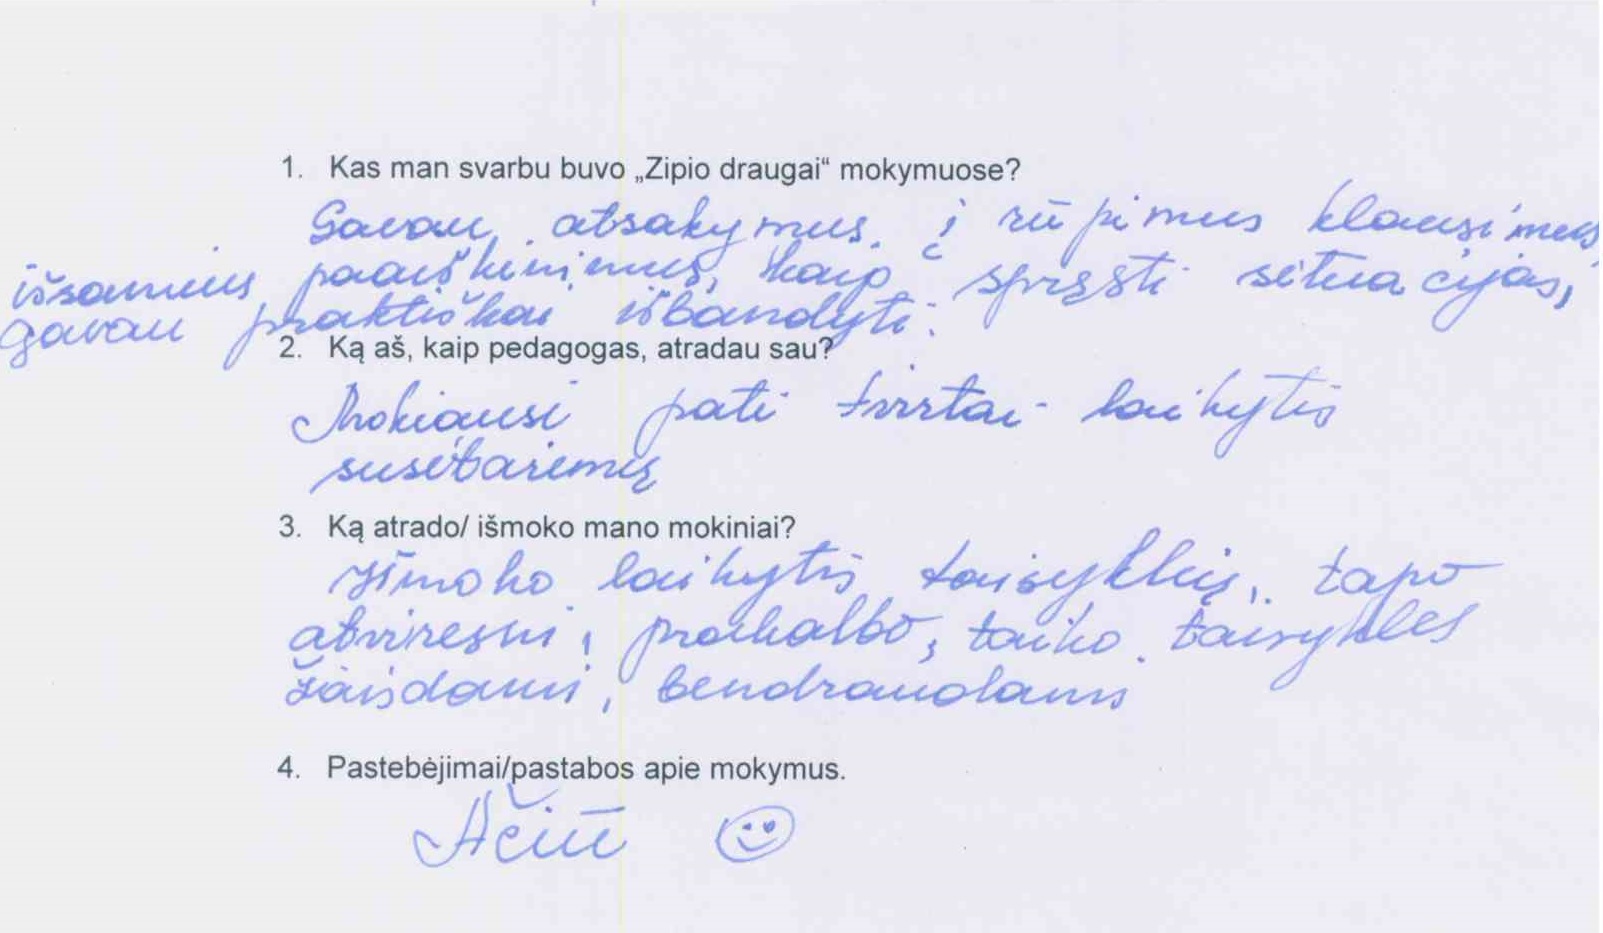 1. Kas man svarbu buvo „Zipio draugai“ mokymuose?
Gavau atsakymus į rūpimus klausimus,
išsamius paaiškinimus, kaip spręsti situacijas,
gavau praktiškai išbandyti.
2. Ką aš, kaip pedagogas, atradau sau?
Mokiausi pati tvirtai laikytis
susitarimų
3. Ką atrado/ išmoko mano mokiniai?
Išmoko laikytis taisyklių, tapo
atviresni, prakalbo, taiko taisykles
žaisdami, bendraudami
4. Pastebėjimai/pastabos apie mokymus.
Ačiū